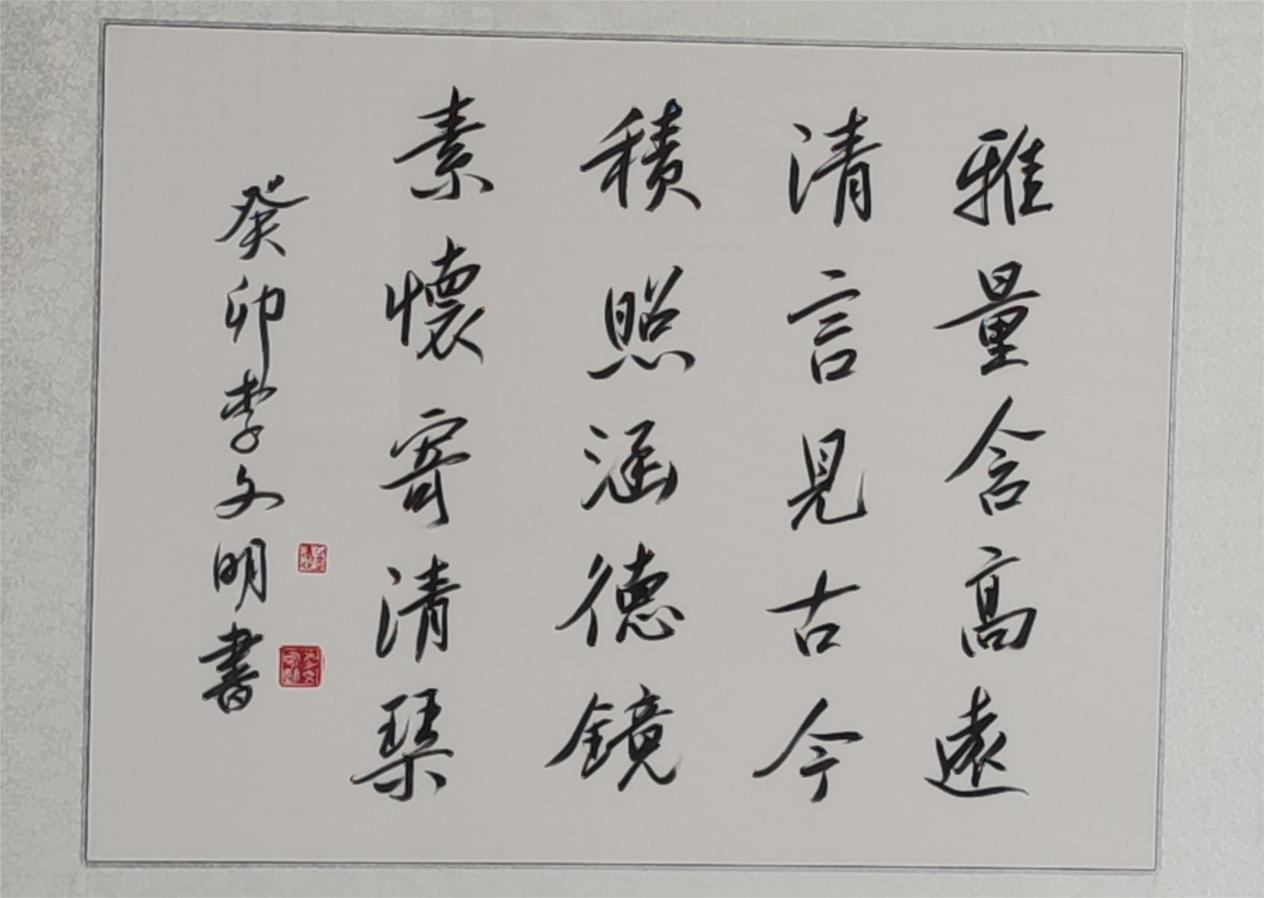 雅量含高遠
清言見古今
積照涵德鏡
素懷寄清琴
癸卯李文明書